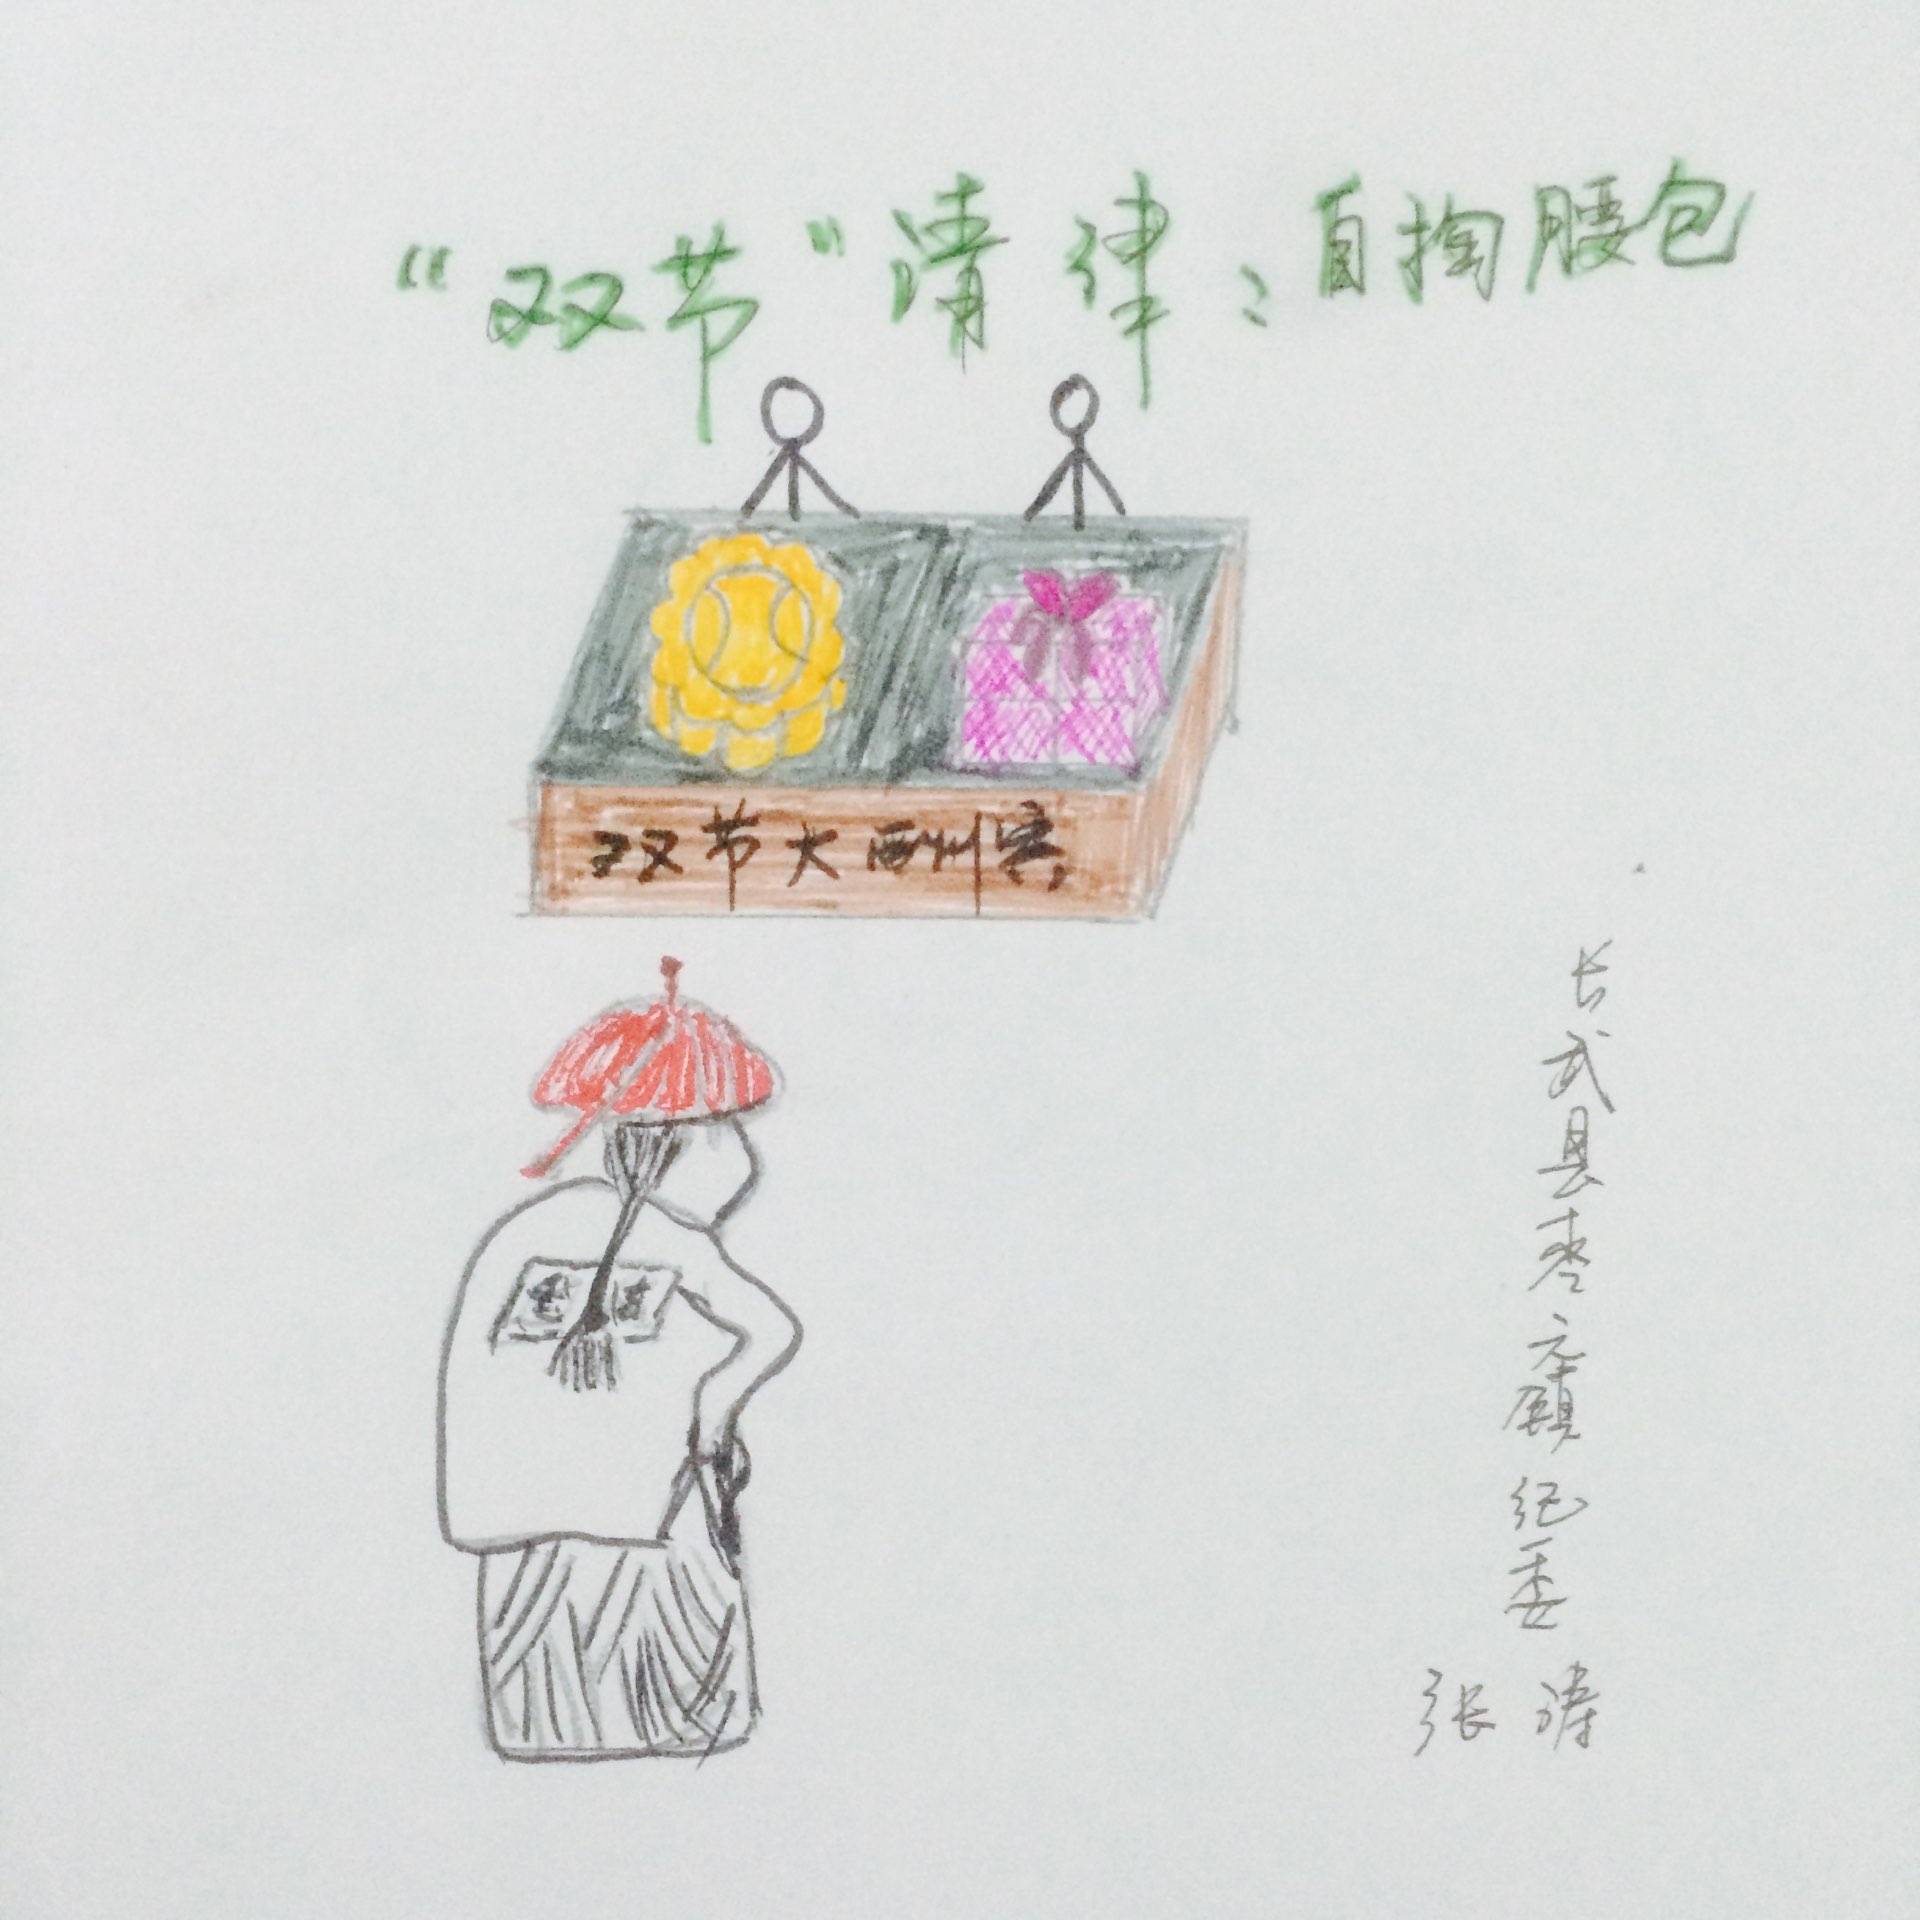 “双节”清律：自掏腰包
双节大酬宾
清
长武县枣元镇纪委
张涛